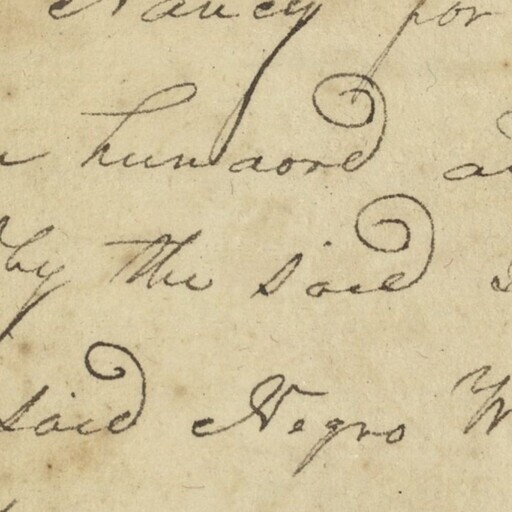 Nancy for
hundord
by the said
said Negro